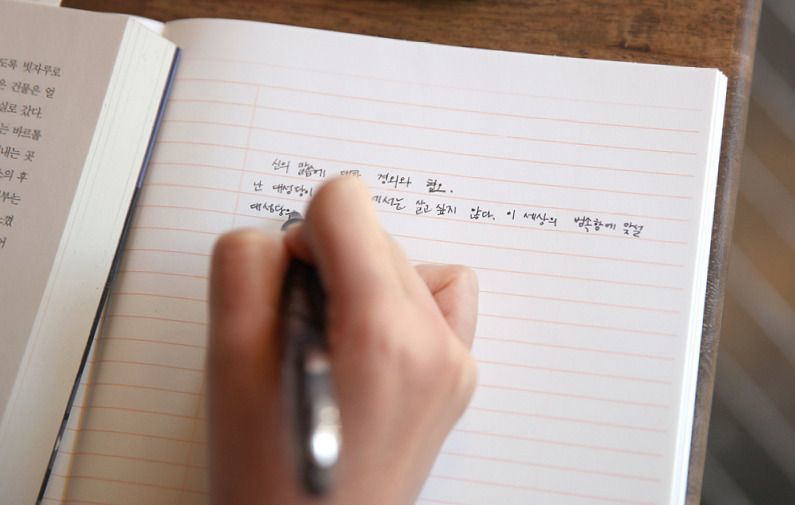 도록 빗자루로
은 건물은 얼
실로 갔다.
는 바르톨
내는 곳
의 후
부는
느꼈
어
신의 말씀에 대한 경외와 혐오.
난 대성당이 세상에서는 살고 싶지 않다. 이 세상의 범속함에 맞설
대성당의